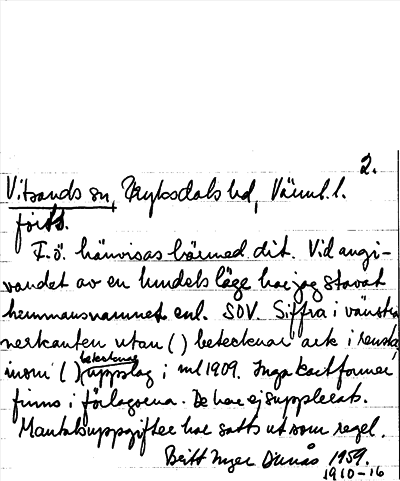 2.
Vitsands sn, Fryksdals hd, Värml. l.
forts.
F. ö. hänvisas härmed dit. Vid angi-
vandet av en lundels läge har jag stavat
hemmansnamnet enl. SOV. Siffra i vänstra
nerkanten utan ( ) betecknar ark i renskr,
inom ( ) betecknar uppslag i ml 1909. Inga kartformer
finns i förlagorna. De har ej supplerats.
Mantalsuppgifter har satts ut som regel.
Britt Inger 1959.
1910-16